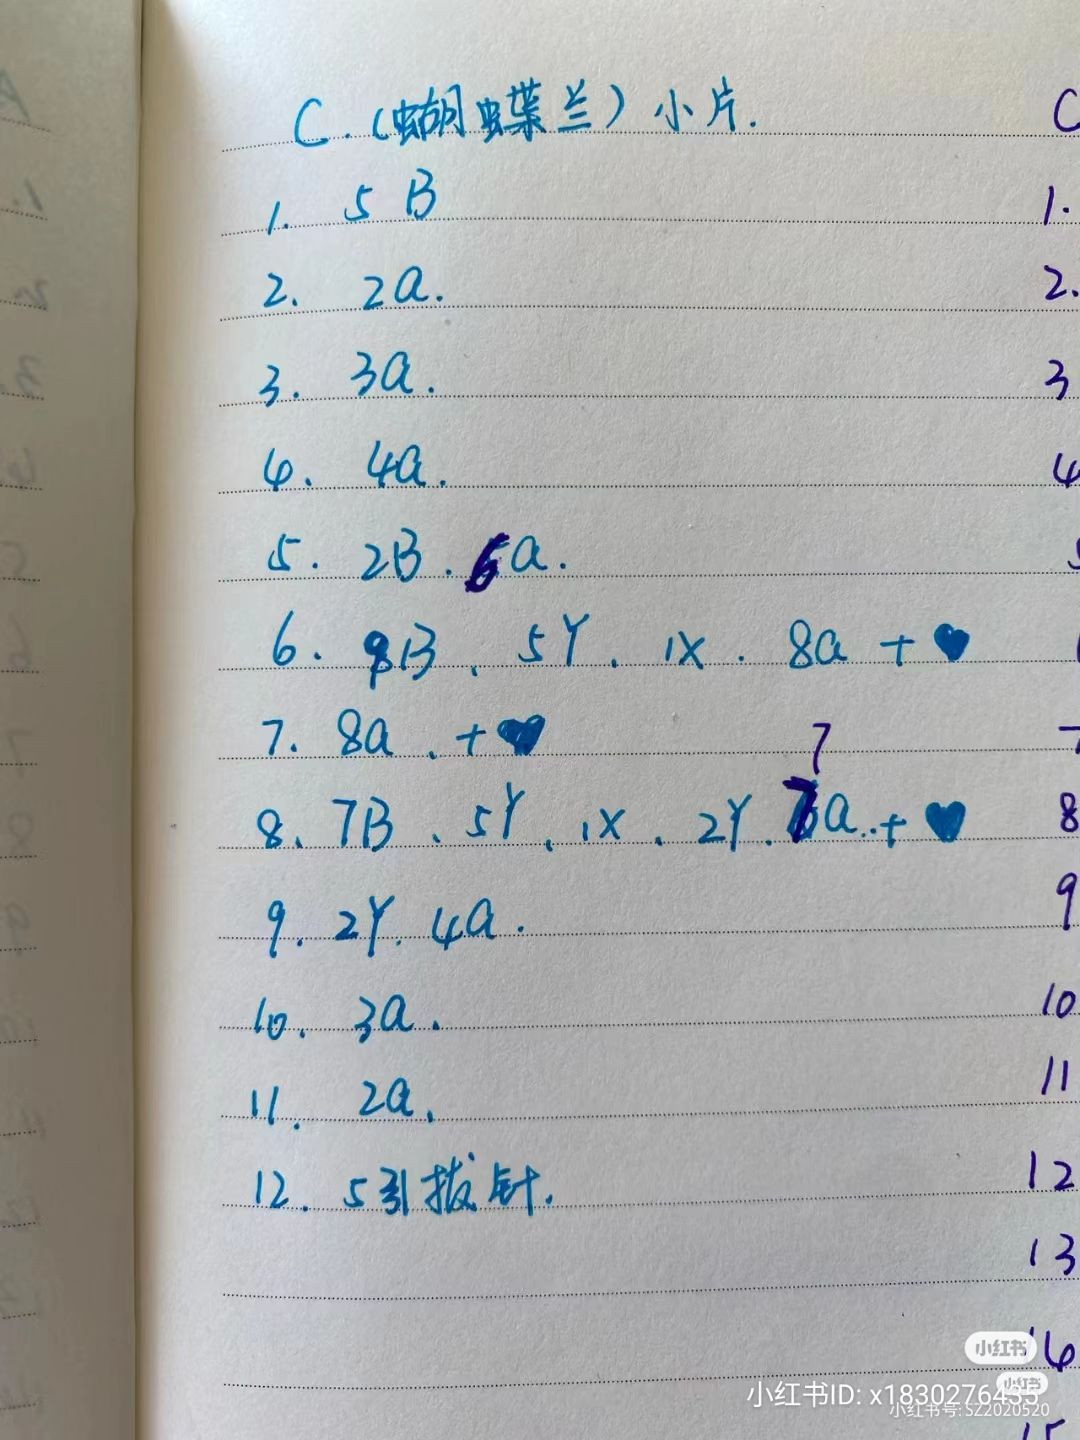 C.（蝴蝶兰）小片.
1. 5B
2. 2a.
3. 3a.
4. 4a.
5. 2B. 6a.
6. 9B. 5Y. 1X. 8a + ♥
7. 8a. + ♥
7
8. 7B. 5Y. 1X. 2Y. 7a. + ♥
9. 2Y. 4a.
10. 3a.
11. 2a.
12. 5引拔针.
C
1.
2.
3
4
5
7
8
9
10
11
12
13
14
15
小红书
小红书
小红书ID: x1830276435
小红书号:SZ2020520